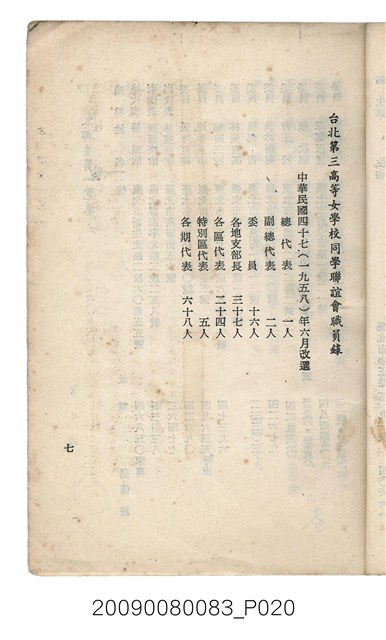 台北第三高等女學校同學聯誼會職員錄
中華民國四十七(一九五八)年六月改選
總代表 一人
副總代表 二人
委員 十六人
各地支部長 三十七人
各區代表 二十四人
特別區代表 五人
各期代表 六十八人
七
20090080083_P020